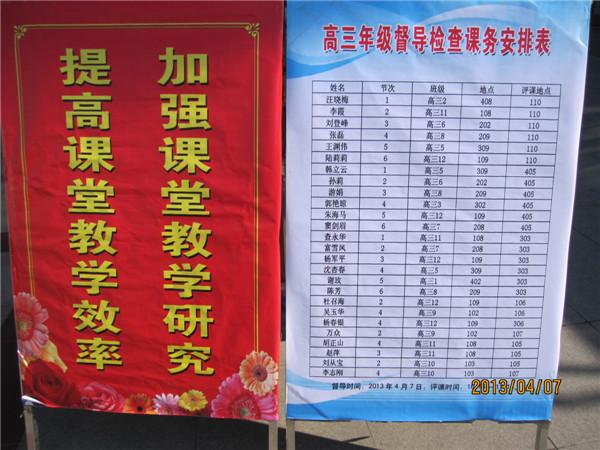 加强课堂教学研究
提高课堂教学效率
高三年级督导检查课务安排表
姓名 节次 班级 地点 评课地点
汪晓梅 1 高三2 408 110
李霞 2 高三11 108 110
刘登峰 3 高三6 202 110
张磊 4 高三8 209 110
王渊伟 5 高三5 309 110
陆莉莉 6 高三12 109 110
韩立云 1 高三5 309 405
孙莉 2 高三6 202 405
游娟 3 高三8 209 405
郭艳琼 4 高三3 302 405
朱海马 5 高三12 109 405
窦剑眉 6 高三7 208 405
查永华 1 高三11 108 303
富雪凤 2 高三7 208 303
杨军平 3 高三12 109 303
沈杏春 4 高三5 309 303
谢玫 5 高三1 402 303
陈芳 6 高三8 209 303
杜召海 2 高三12 109 106
吴玉华 4 高三9 102 106
杨春银 4 高三12 109 306
万众 2 高三9 102 107
胡正山 4 高三11 108 105
赵萍 3 高三11 108 105
刘从宝 2 高三10 103 105
李志刚 4 高三10 103 107
督导时间:2013年4月7日;评课时间:
2013/04/07